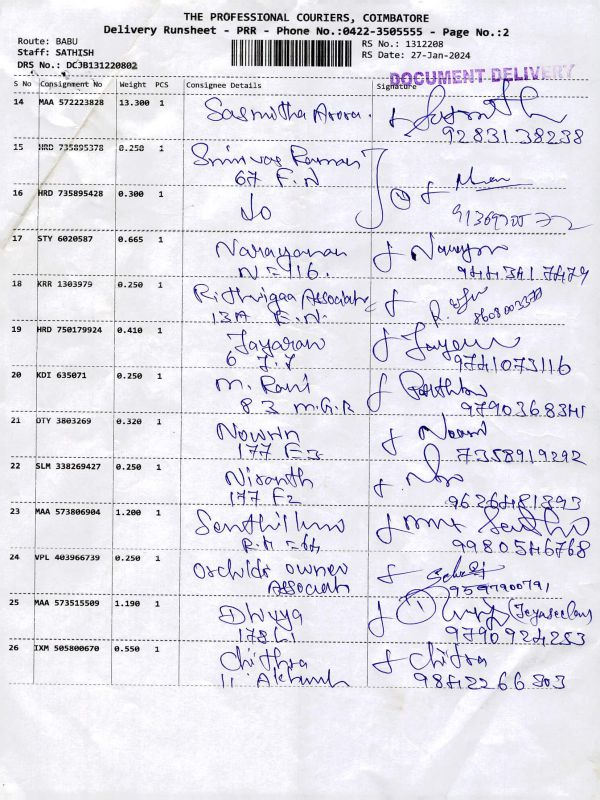 THE PROFESSIONAL COURIERS, COIMBATORE
Delivery Runsheet - PRR - Phone No.:0422-3505555 - Page No.:2
Route: BABU
Staff: SATHISH
DRS No.: DCJB131220802
RS No.: 1312208
RS Date: 27-Jan-2024
DOCUMENT DELIVERY
S No Consignment No Weight PCS Consignee Details Signature
14 MAA 572223828 13.300 1 Sasmitha Arora.
92831 38238
15 HRD 735895378 0.250 1 Srinivas Raman
67 F.N
16 HRD 735895428 0.300 1 do
17 STY 6020587 0.665 1 Narayanan
N=116.
18 KRR 1303979 0.250 1 Associate
13A E.N.
19 HRD 750179924 0.410 1 Jayaram
6 J.J
9741073116
20 KDI 635071 0.250 1 M. Rani
83 M.G.R
21 OTY 3803269 0.320 1 Nowrin
177 F3
7358919292
22 SLM 338269427 0.250 1 Nisanth
177 F2
9626481893
23 MAA 573806904 1.200 1
9980546768
24 VPL 403966739 0.250 1 Orchids owner
Associate
9597900791
25 MAA 573515509 1.190 1 Dhivya
(Jeyaseelan)
9790924253
26 IXM 505800670 0.550 1 Chithra Chitra
11